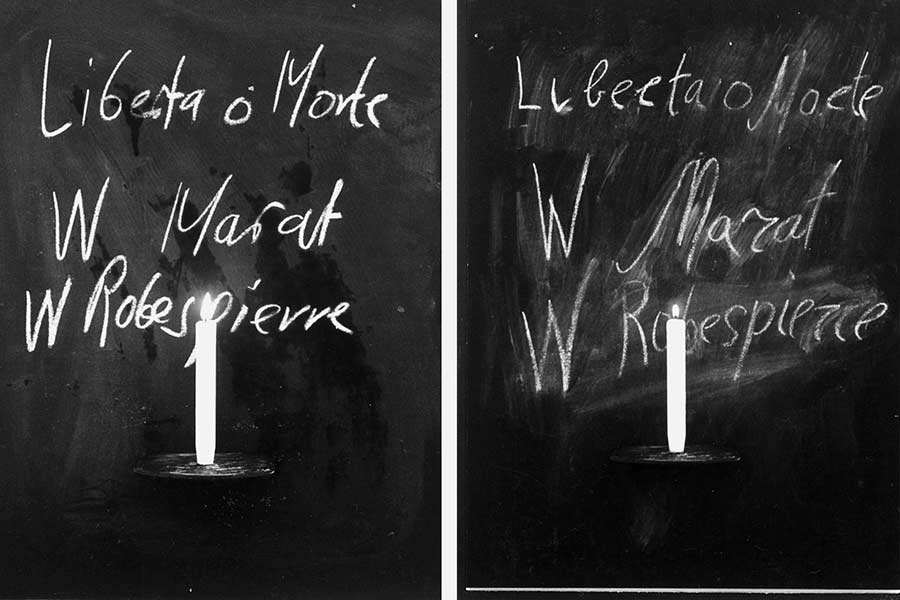 Liberta o Morte
W Marat
W Robespierre
Liberta o Morte
W Marat
W Robespierre